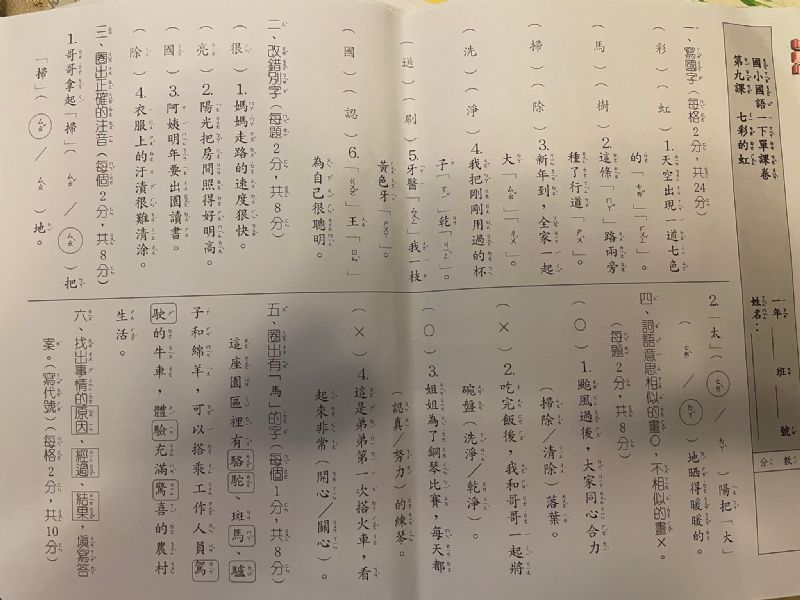 國小國語一下單課卷
第九課　七彩的虹
一年　班　號
姓名：
分數
一、寫國字（每格2分，共24分）
（彩）（虹）1.天空出現一道七色
的「ㄘㄞˇ」「ㄏㄨㄥˊ」。
（馬）（樹）2.這條「ㄇㄚˇ」路兩旁
種了行道「ㄕㄨˋ」。
（掃）（除）3.新年到，全家一起
大「ㄙㄠˇ」「ㄔㄨˊ」。
（洗）（淨）4.我把剛剛用過的杯
子「ㄒㄧˇ」乾「ㄐㄧㄥˋ」。
（送）（刷）5.牙醫「ㄙㄨㄥˋ」我一枝
黃色牙「ㄕㄨㄚ」。
（國）（認）6.「ㄍㄨㄛˊ」王「ㄖㄣˋ」
為自己很聰明。
二、改錯別字（每題2分，共8分）
（很）1.媽媽走路的速度狠快。
（亮）2.陽光把房間照得好明高。
（國）3.阿姨明年要出園讀書。
（除）4.衣服上的汙漬很難清涂。
三、圈出正確的注音（每個2分，共8分）
1.哥哥拿起「掃」（ㄙㄠˋ／ㄙㄠˇ）把
「掃」（ㄙㄠˇ／ㄙㄠˋ）地。
2.「太」（ㄊㄞˋ／ㄉㄚˋ）陽把「大」
（ㄊㄞˋ／ㄉㄚˋ）地晒得暖暖的。
四、詞語意思相似的畫○，不相似的畫×。
（每題2分，共8分）
（○）1.颱風過後，大家同心合力
（掃除／清除）落葉。
（×）2.吃完飯後，我和哥哥一起將
碗盤（洗淨／乾淨）。
（○）3.姐姐為了鋼琴比賽，每天都
（認真／努力）的練琴。
（×）4.這是弟弟第一次搭火車，看
起來非常（開心／關心）。
五、圈出有「馬」的字（每個1分，共8分）
這座園區裡有駱駝、斑馬、驢
子和綿羊，可以搭乘工作人員駕
駛的牛車，體驗充滿驚喜的農村
生活。
六、找出事情的原因、經過、結果，填寫答
案。（寫代號）（每格2分，共10分）